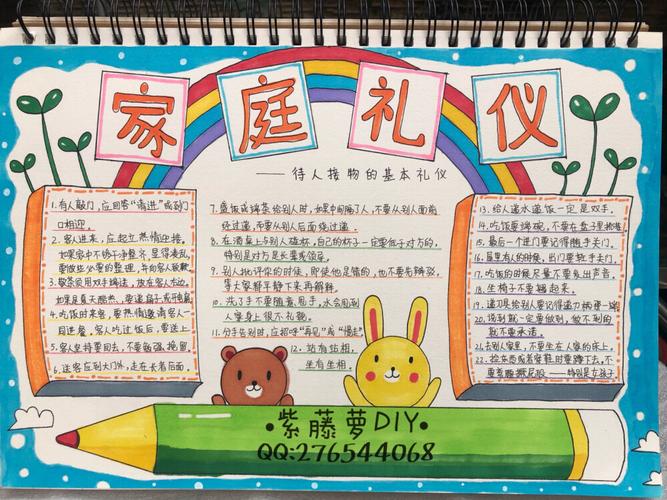 家庭礼仪
——待人接物的基本礼仪
1.有人敲门,应回答“请进”或到门
口相迎。
2.客人进来,应起立热情迎接。
如果家中不够干净整齐,显得凌乱,
要做些必要的整理,并向客人致歉
3.敬茶须用双手端送,放在客人右边。
如果是夏天酷热,要递扇子或开电扇
4.吃饭时来客,要热情邀请客人一
同进餐。客人吃过饭后,要送上
5.客人坚持要回去,不要勉强挽留。
6.送客应到大门外,走在长者后面。
7.盛饭或端茶给别人时,如果中间隔了人,不要从别人面前
绕过递,而要从别人后面绕过递。
8.在酒桌上与别人碰杯,自己的杯子一定要低于对方的,
特别是对方是长辈或领导。
9.别人批评你的时候,即使他是错的,也不要先辩驳,
等大家都平静下来再解释。
10.洗了手不要随意甩手,水会甩到
人家身上很不礼貌。
11.分手告别时,应招呼“再见”或“慢走”
12.站有站相,
坐有坐相。
13.给人递水递饭一定是双手。
14.吃饭要端碗,不要在盘子里挑拣
15.最后一个进门要记得随手关门。
16.屋里有人的时候,出门要轻手关门。
17.吃饭的时候尽量不要发出声音。
18.坐椅子不要翘起来。
19.递刀具给别人要记得递刀柄那一端
20.说到就一定要做到,做不到的
就不要承诺。
21.去别人家里,不要坐在人家的床上。
22.捡东西或者穿鞋时要蹲下去,不
要弯腰撅屁股——特别是女孩子
·紫藤萝DIY·
QQ:276544068